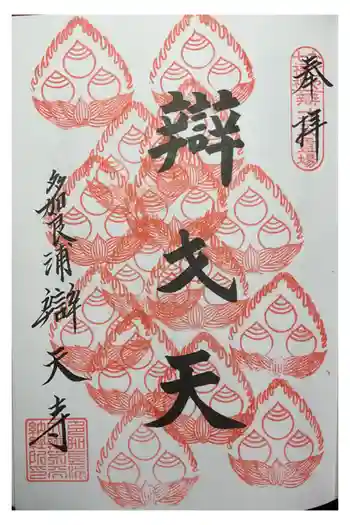 奉拝
辯才天
多加良浦辯天寺